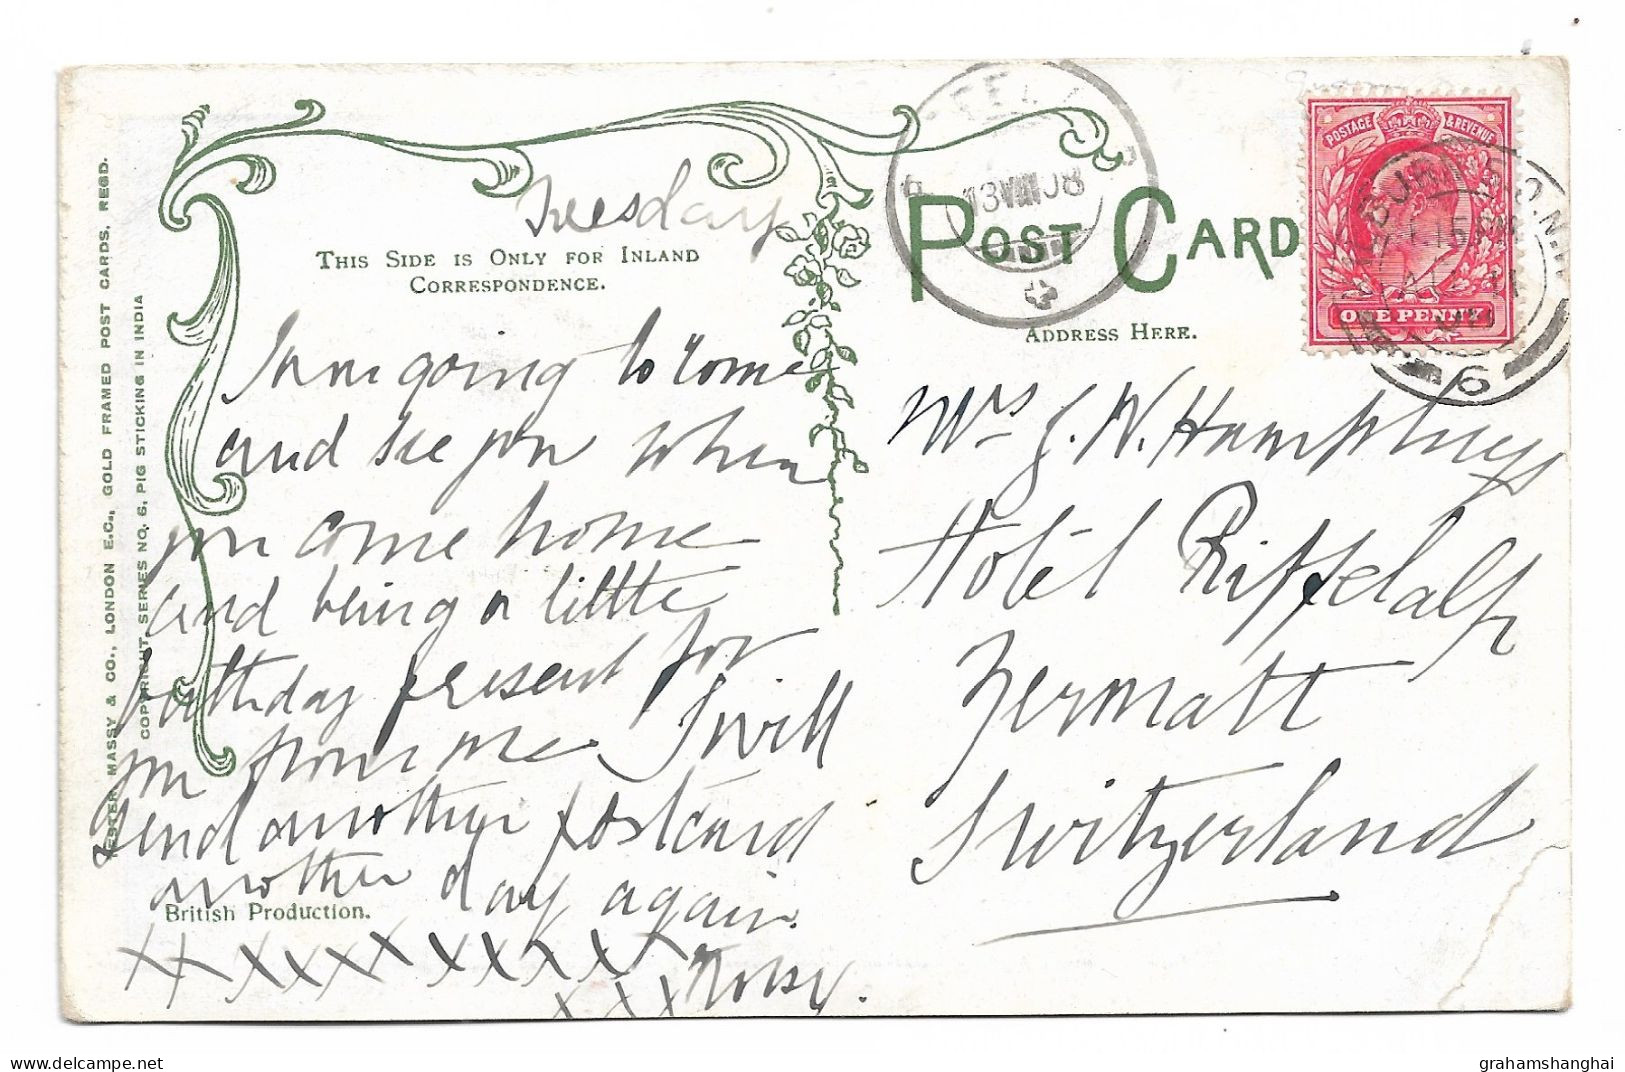 Tuesday
THIS SIDE IS ONLY FOR INLAND
CORRESPONDENCE.
I am going to come
and see you when
you come home
and being a little
birthday present for
you from me I will
send another postcard
another day again.
XX XXXX XXXXXX
XXX
HESTER MASSY & CO., LONDON E.C., GOLD FRAMED POST CARDS, REGD.
COPYRIGHT. SERIES NO. 6. PIG STICKING IN INDIA
British Production.
POST CARD
ADDRESS HERE.
13 VIII 08
POSTAGE & REVENUE
ONE PENNY
6
Mrs J. W. Humphreys
Hotel Riffelalp
Zermatt
Switzerland
grahamshanghai